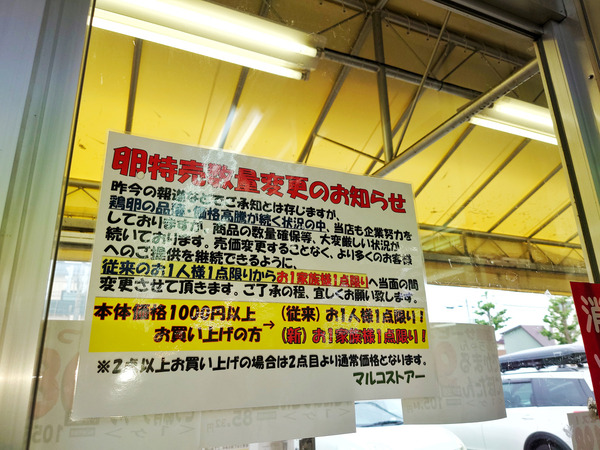 卵特売数量変更のお知らせ
昨今の報道などでご承知とは存じますが、
鶏卵の品薄・価格高騰が続く状況の中、当店も企業努力を
しておりますが、商品の数量確保等、大変厳しい状況が
続いております。売価変更することなく、より多くのお客様
へのご提供を継続できるように、
従来のお1人様1点限りからお1家族様1点限りへ当面の間
変更させて頂きます。ご了承の程、宜しくお願い致します。
本体価格1000円以上
お買い上げの方
→
(従来)お1人様1点限り!
(新)お1家族様1点限り!
※2点以上お買い上げの場合は2点目より通常価格となります。
マルコストアー
消